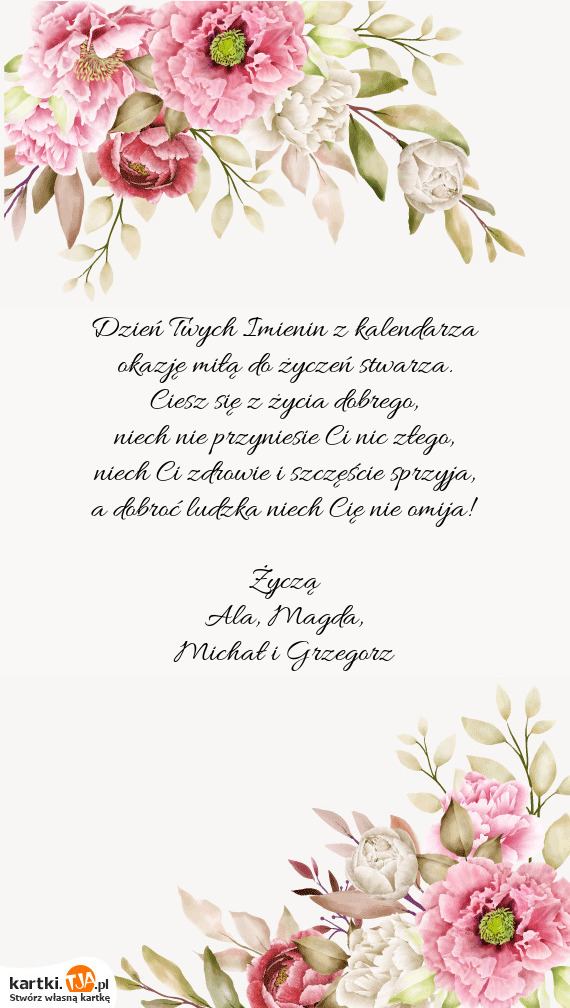 Dzień Twych Imienin z kalendarza
okazję miłą do życzeń stwarza.
Ciesz się z życia dobrego,
niech nie przyniesie Ci nic złego,
niech Ci zdrowie i szczęście sprzyja,
a dobroć ludzka niech Cię nie omija!
Życzą
Ala, Magda,
Michał i Grzegorz
kartki.TJA.pl
Stwórz własną kartkę